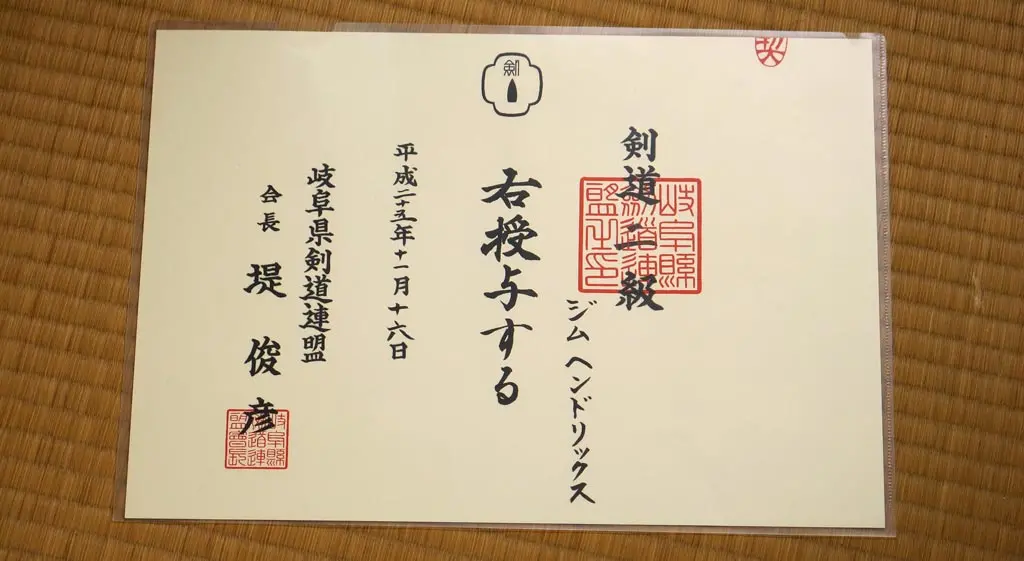 剣
剣道二級
岐阜縣剣道連盟之印
ジム ヘンドリックス
右授与する
平成二十五年十一月十六日
岐阜県剣道連盟
会長 堤 俊彦
岐阜縣剣道連盟會長